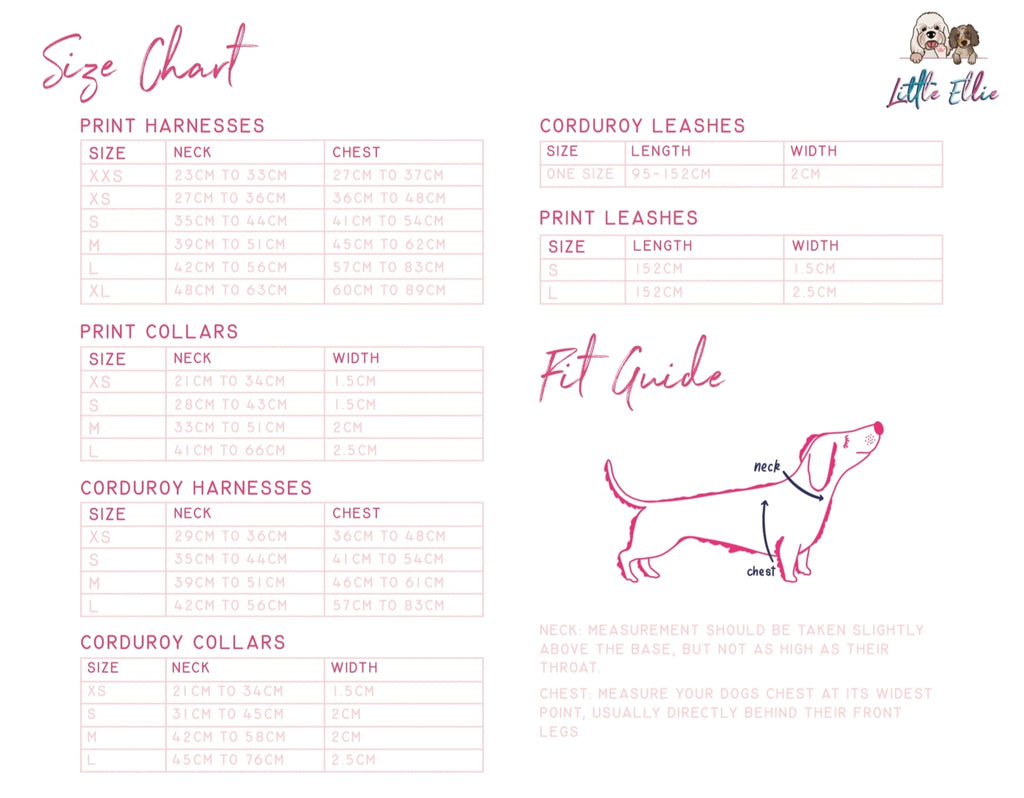 Size Chart
Little Ellie
PRINT HARNESSES
SIZE NECK CHEST
XXS 23CM TO 33CM 27CM TO 37CM
XS 27CM TO 36CM 36CM TO 48CM
S 35CM TO 44CM 41CM TO 54CM
M 39CM TO 51CM 45CM TO 62CM
L 42CM TO 56CM 57CM TO 83CM
XL 48CM TO 63CM 60CM TO 89CM
PRINT COLLARS
SIZE NECK WIDTH
XS 21CM TO 34CM 1.5CM
S 28CM TO 43CM 1.5CM
M 33CM TO 51CM 2CM
L 41CM TO 66CM 2.5CM
CORDUROY HARNESSES
SIZE NECK CHEST
XS 29CM TO 36CM 36CM TO 48CM
S 35CM TO 44CM 41CM TO 54CM
M 39CM TO 51CM 46CM TO 61CM
L 42CM TO 56CM 57CM TO 83CM
CORDUROY COLLARS
SIZE NECK WIDTH
XS 21CM TO 34CM 1.5CM
S 31CM TO 45CM 2CM
M 42CM TO 58CM 2CM
L 45CM TO 76CM 2.5CM
CORDUROY LEASHES
SIZE LENGTH WIDTH
ONE SIZE 95-152CM 2CM
PRINT LEASHES
SIZE LENGTH WIDTH
S 152CM 1.5CM
L 152CM 2.5CM
Fit Guide
neck
chest
NECK: MEASUREMENT SHOULD BE TAKEN SLIGHTLY
ABOVE THE BASE, BUT NOT AS HIGH AS THEIR
THROAT.
CHEST: MEASURE YOUR DOGS CHEST AT ITS WIDEST
POINT, USUALLY DIRECTLY BEHIND THEIR FRONT
LEGS